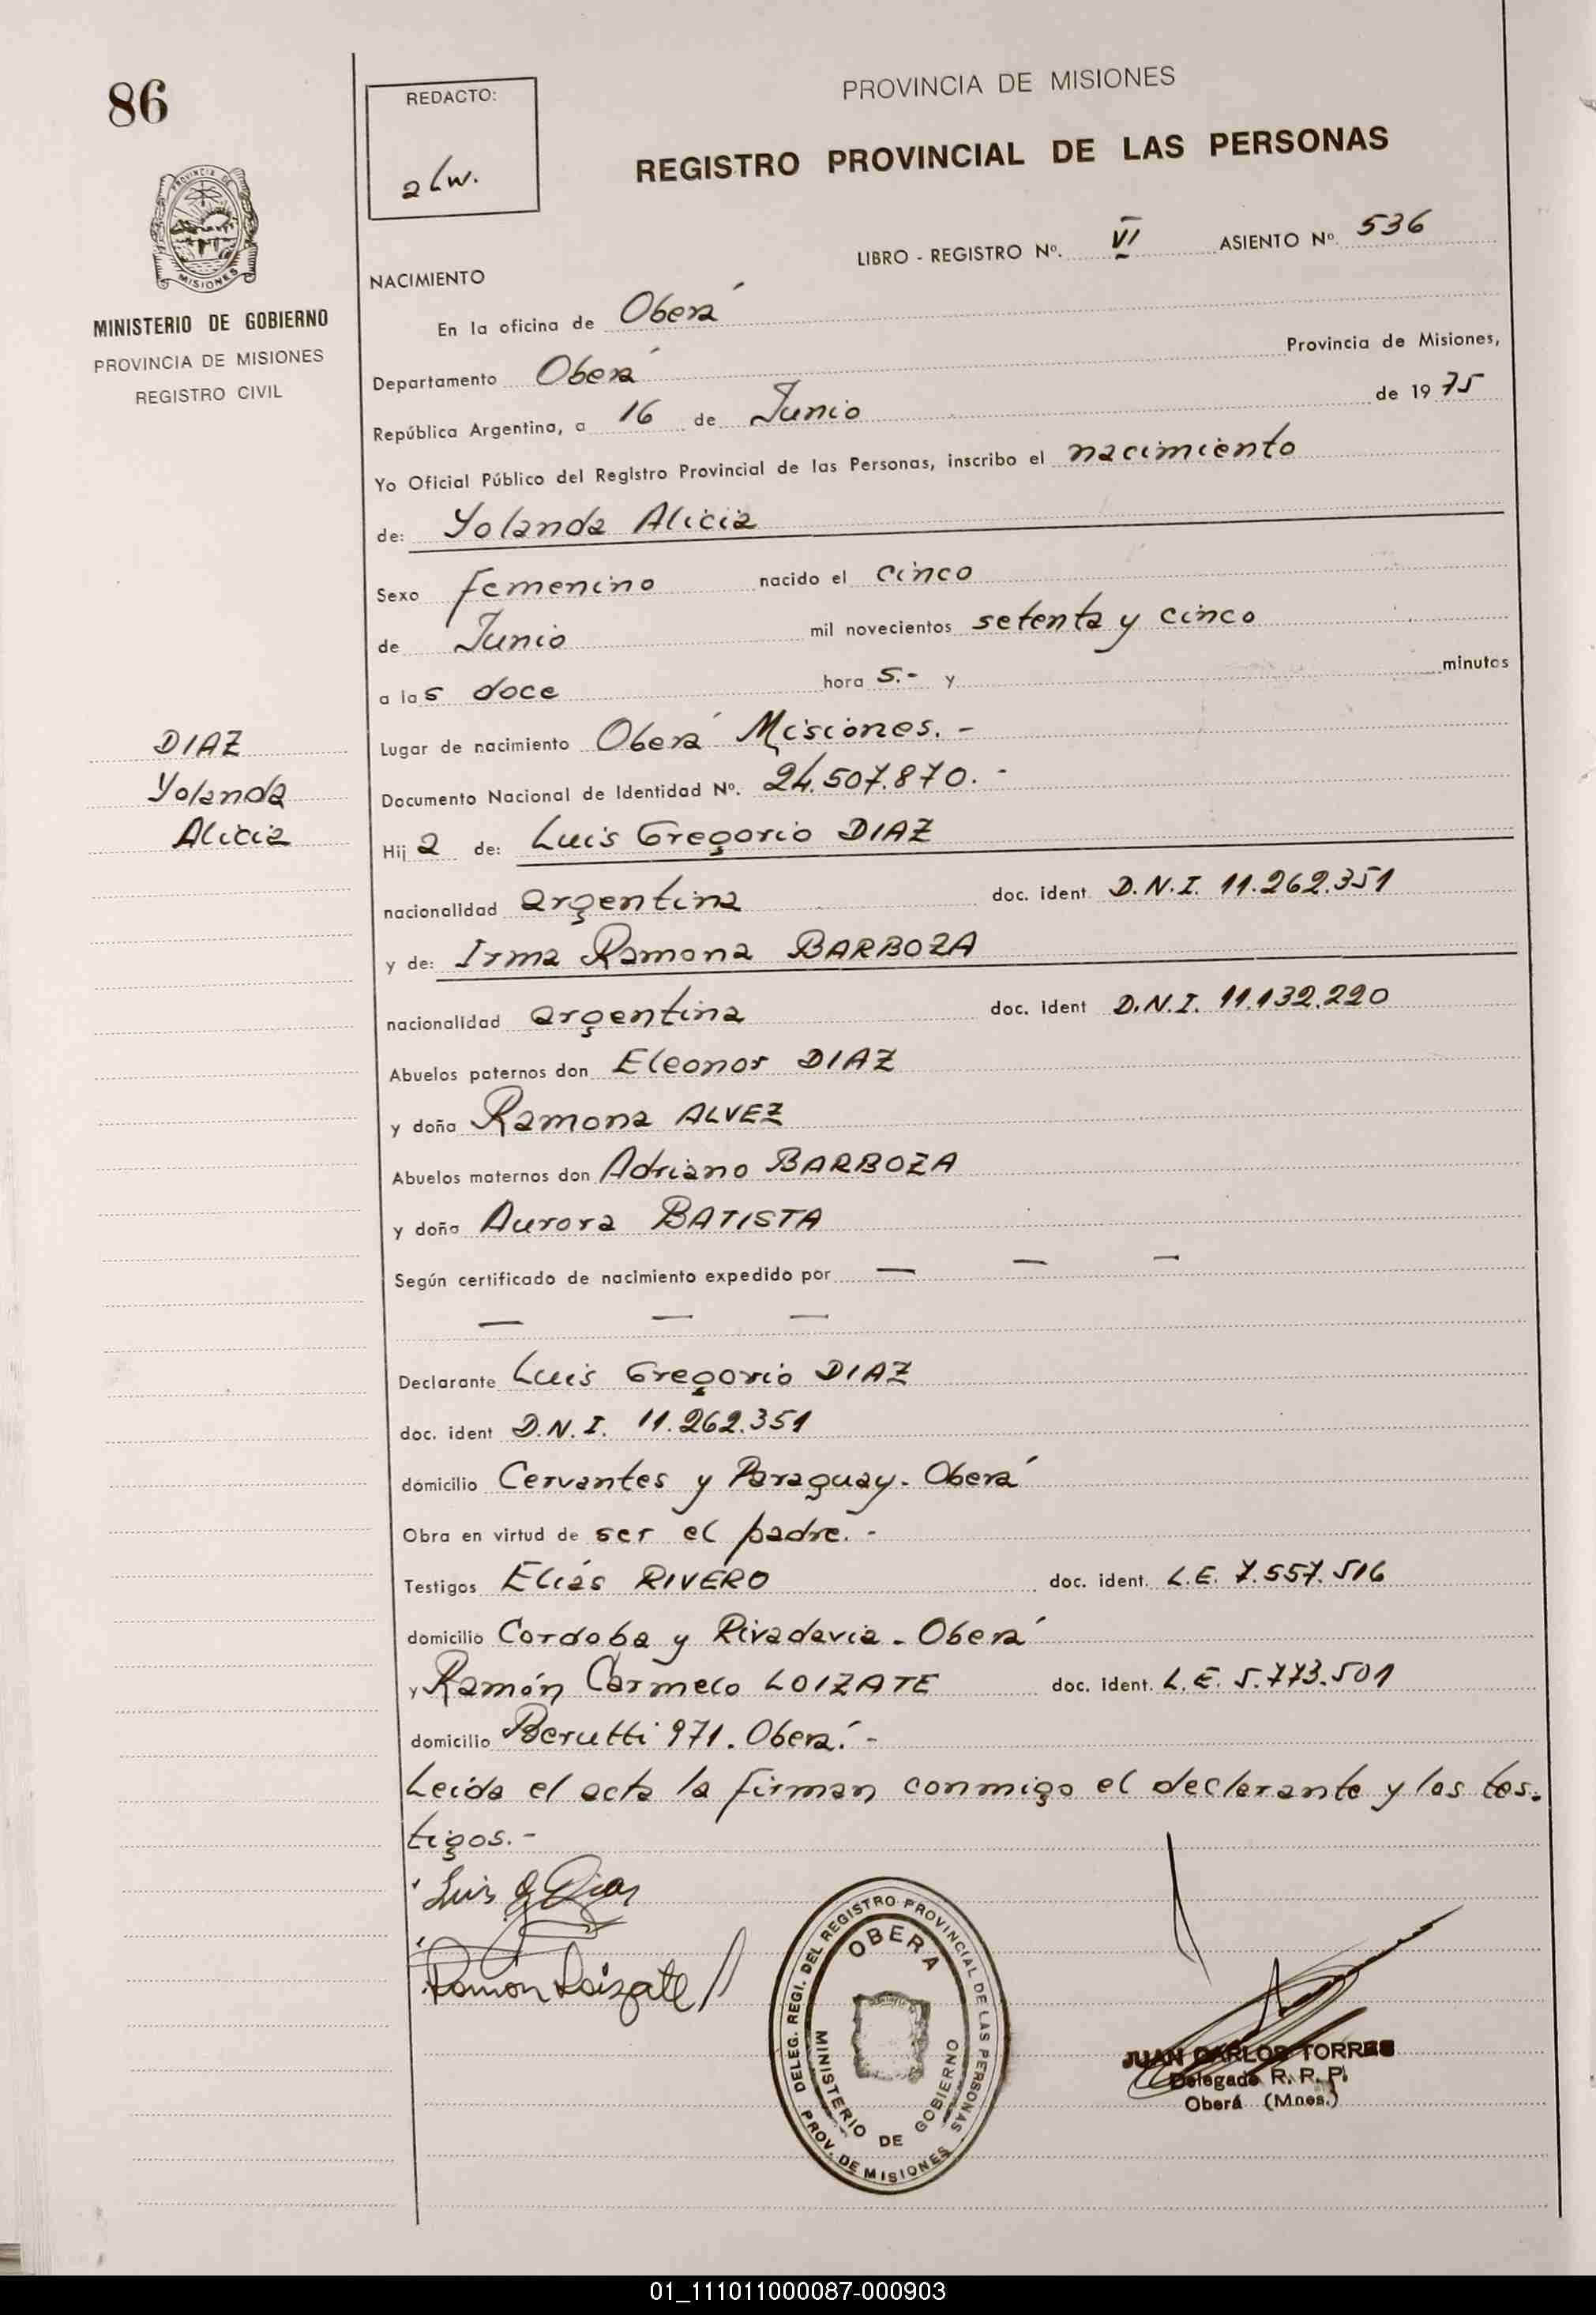 86
REDACTO:
PROVINCIA DE MISIONES
REGISTRO PROVINCIAL DE LAS PERSONAS
LIBRO - REGISTRO Nº. VI ASIENTO Nº. 536
PROVINCIA DE
MISIONES
MINISTERIO DE GOBIERNO
PROVINCIA DE MISIONES
REGISTRO CIVIL
NACIMIENTO
En la oficina de Oberá
Departamento Oberá Provincia de Misiones,
República Argentina, a 16 de Junio de 1975
Yo Oficial Público del Registro Provincial de las Personas, inscribo el nacimiento
de: Yolanda Alicia
Sexo femenino nacido el cinco
de Junio mil novecientos setenta y cinco
a las doce hora s.- y minutos
DIAZ
Yolanda
Alicia
Lugar de nacimiento Oberá Misiones.-
Documento Nacional de Identidad Nº. 24.507.870.-
Hija de: Luis Gregorio DIAZ
nacionalidad argentina doc. ident D.N.I. 11.262.351
y de: Irma Ramona BARBOZA
nacionalidad argentina doc. ident D.N.I. 11.132.220
Abuelos paternos don Eleonor DIAZ
y doña Ramona ALVEZ
Abuelos maternos don Adriano BARBOZA
y doña Aurora BATISTA
Según certificado de nacimiento expedido por — — —
— — —
Declarante Luis Gregorio DIAZ
doc. ident D.N.I. 11.262.351
domicilio Cervantes y Paraguay - Oberá
Obra en virtud de ser el padre.-
Testigos Elías RIVERO doc. ident. L.E. 7.557.516
domicilio Cordoba y Rivadavia - Oberá
y Ramón Carmelo LOIZATE doc. ident. L.E. 5.773.501
domicilio Berutti 971. Oberá.-
Leída el acta la firman conmigo el declarante y los tes-
tigos.-
Luis G Diaz
Ramon Loizate
DELEG. REGI. DEL REGISTRO PROVINCIAL DE LAS PERSONAS
PROV. DE MISIONES
OBERA
MINISTERIO DE GOBIERNO
JUAN CARLOS TORRES
Delegado R. R. P.
Oberá (Mnes.)
01_111011000087-000903